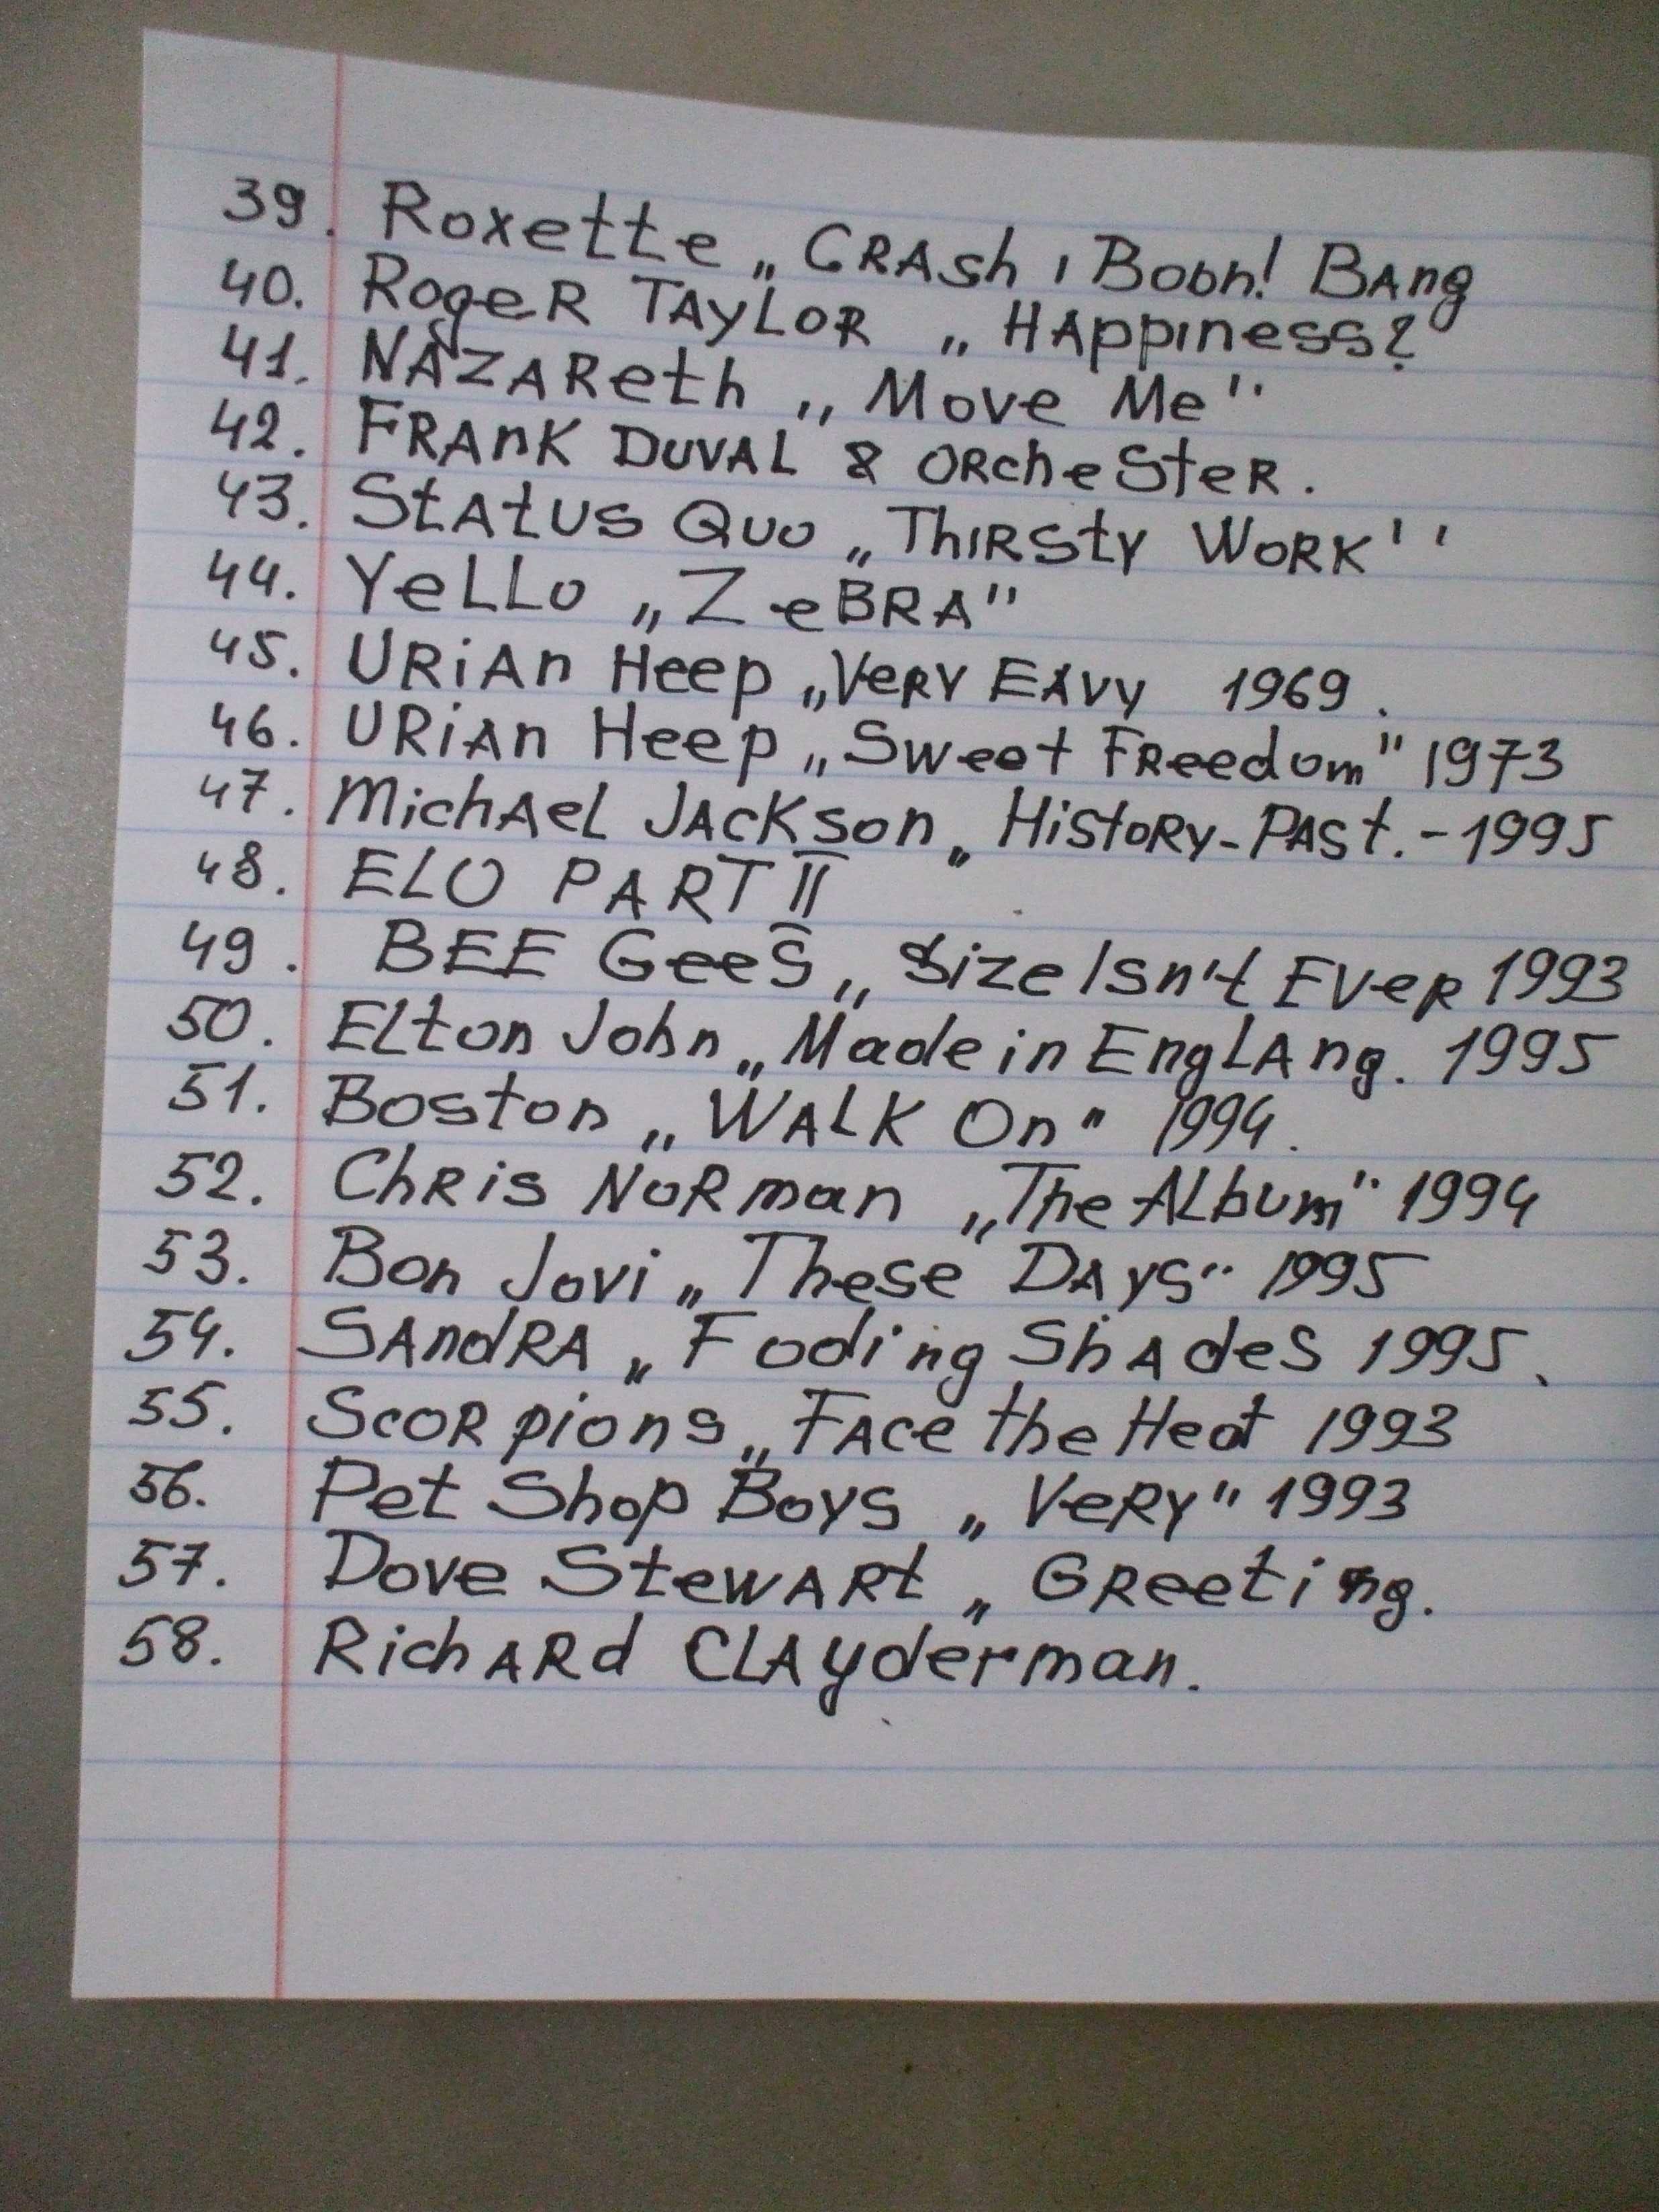 39. Roxette „CRAsh, Boon! BAng
40. RogeR TAyLOR „HAppiness?
41. NAZAReth „Move Me"
42. FRAnK DUVAL & ORcheSteR.
43. StAtUS QUO „ThiRSty WORK"
44. YeLLO „ZeBRA"
45. URiAn Heep „VeRy EAvy 1969.
46. URiAn Heep „Sweet FReedom" 1973
47. MichAeL JAcKson „HiStoRy-PAst.-1995
48. ELO PART II
49. BEE GeeS „Size Isn't EVeR 1993
50. ELton John „Made in EngLAng. 1995
51. Boston „WALK On" 1994.
52. ChRis NoRman „The ALbum" 1994
53. Bon Jovi „These DAyS" 1995
54. SAndRA „Foding ShAdeS 1995.
55. ScoRpions „FAce the Heat 1993
56. Pet Shop Boys „VeRy" 1993
57. Dove StewARt „GReeting.
58. RichARd CLAyderman.